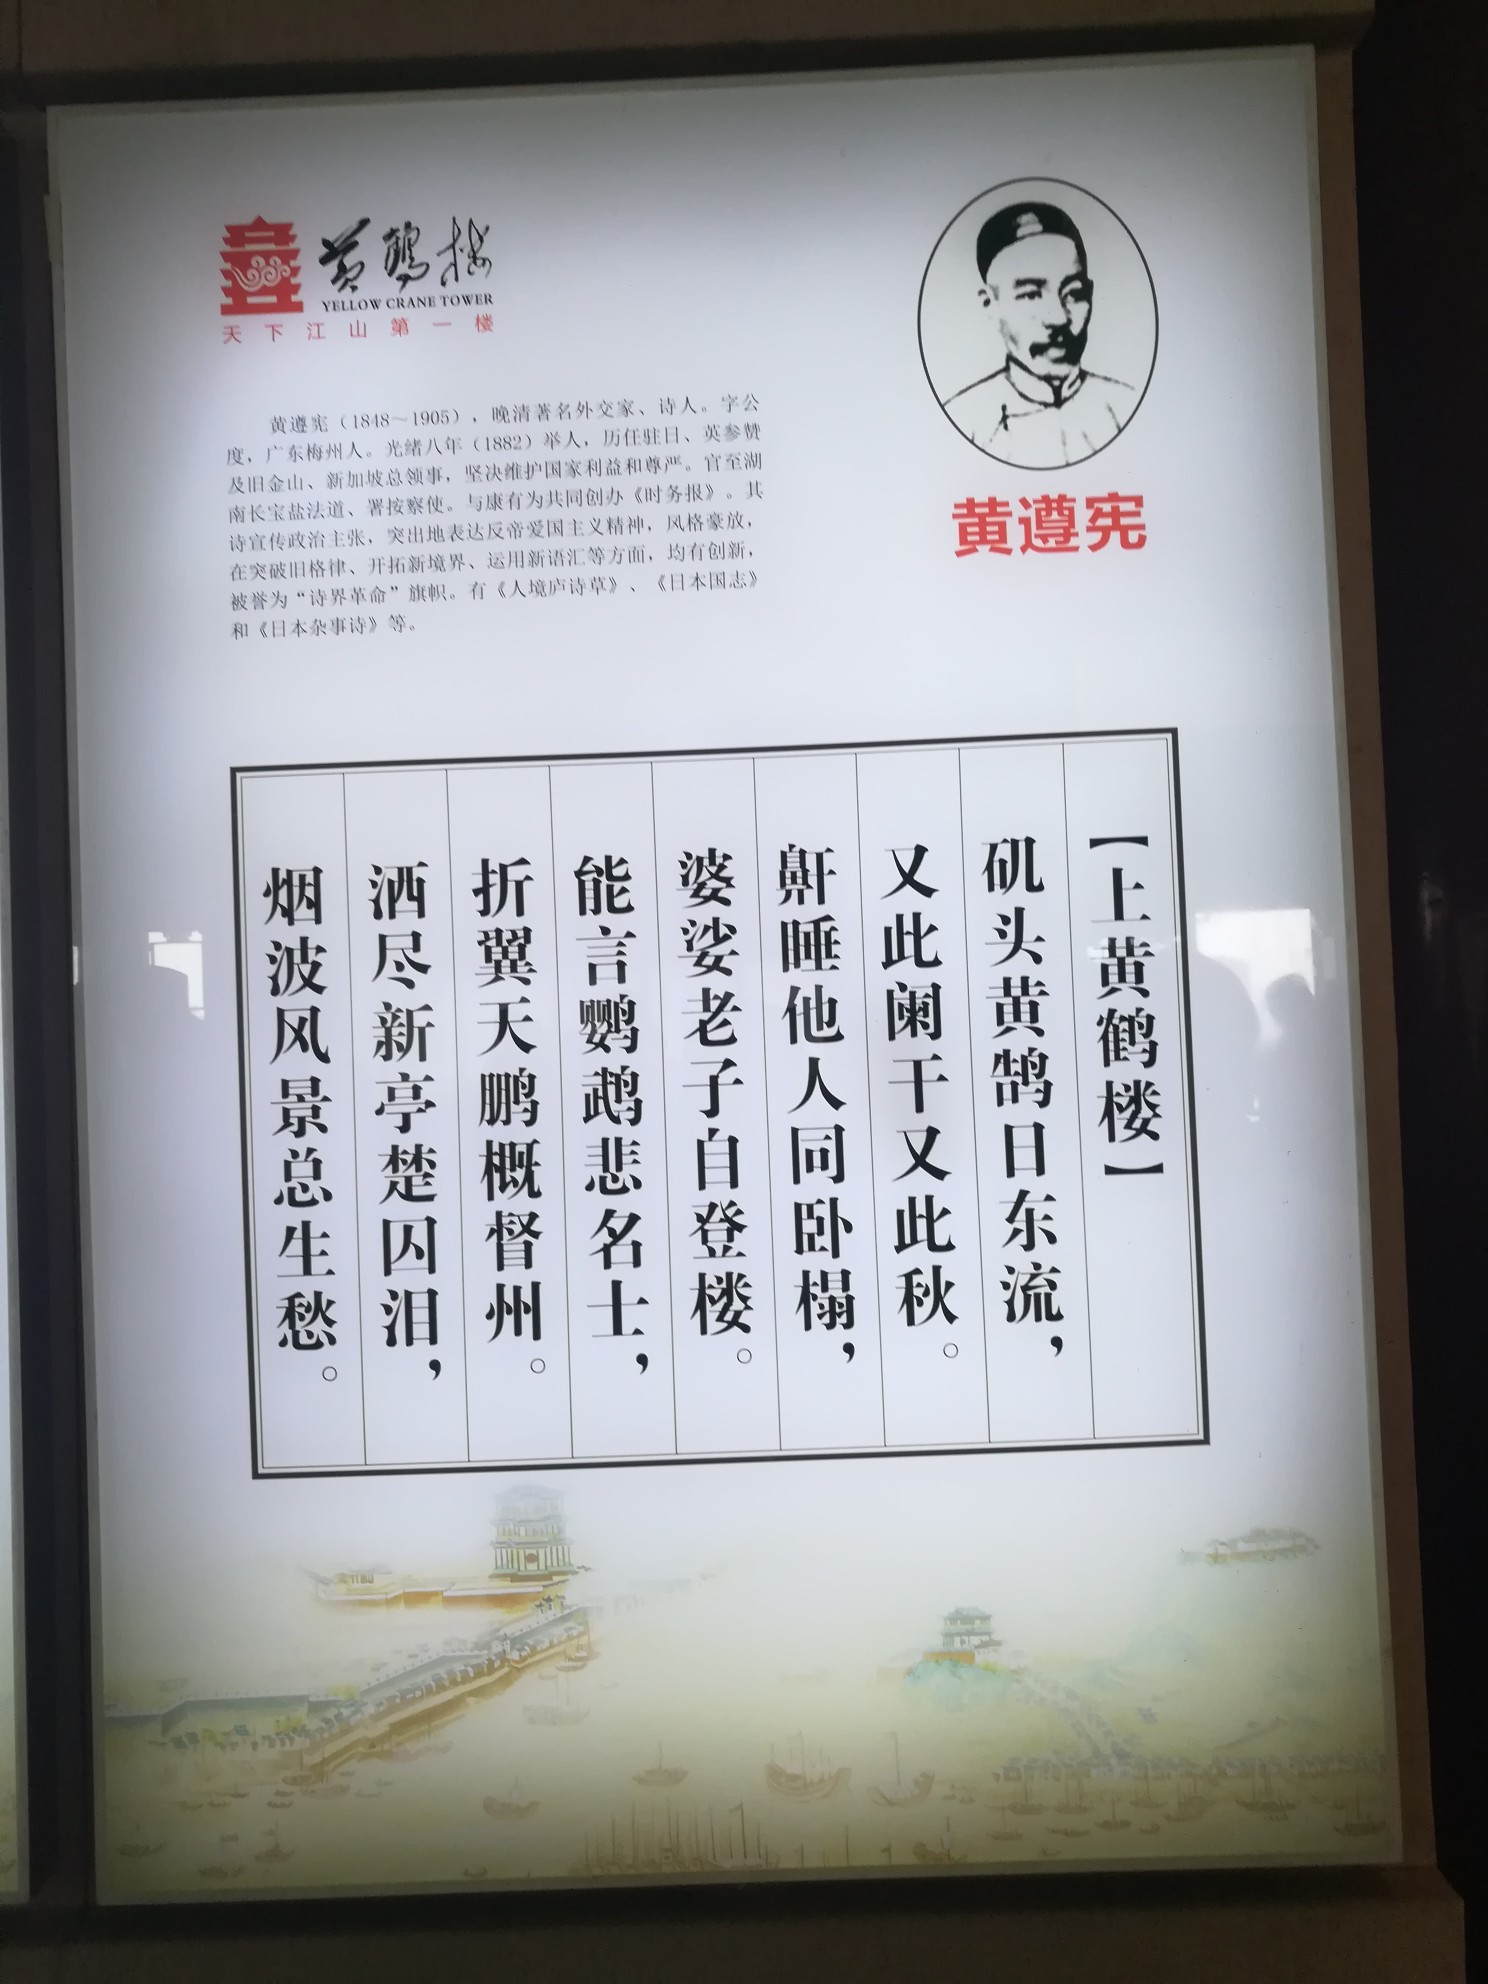 黄鹤楼
YELLOW CRANE TOWER
天下江山第一楼
黄遵宪
黄遵宪（1848～1905），晚清著名外交家、诗人。字公
度，广东梅州人。光绪八年（1882）举人，历任驻日、英参赞
及旧金山、新加坡总领事，坚决维护国家利益和尊严。官至湖
南长宝盐法道、署按察使。与康有为共同创办《时务报》。其
诗宣传政治主张，突出地表达反帝爱国主义精神，风格豪放，
在突破旧格律、开拓新境界、运用新语汇等方面，均有创新，
被誉为“诗界革命”旗帜。有《人境庐诗草》、《日本国志》
和《日本杂事诗》等。
【上黄鹤楼】
矶头黄鹄日东流，
又此阑干又此秋。
鼾睡他人同卧榻，
婆娑老子自登楼。
能言鹦鹉悲名士，
折翼天鹏概督州。
洒尽新亭楚囚泪，
烟波风景总生愁。